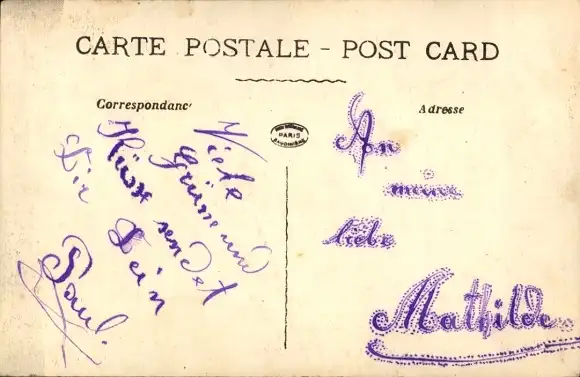 CARTE POSTALE - POST CARD
Correspondance
Adresse
PARIS
Viele
Grüsse und
Küsse sendet
Dir Dein
Paul.
An
meine
liebe
Mathilde